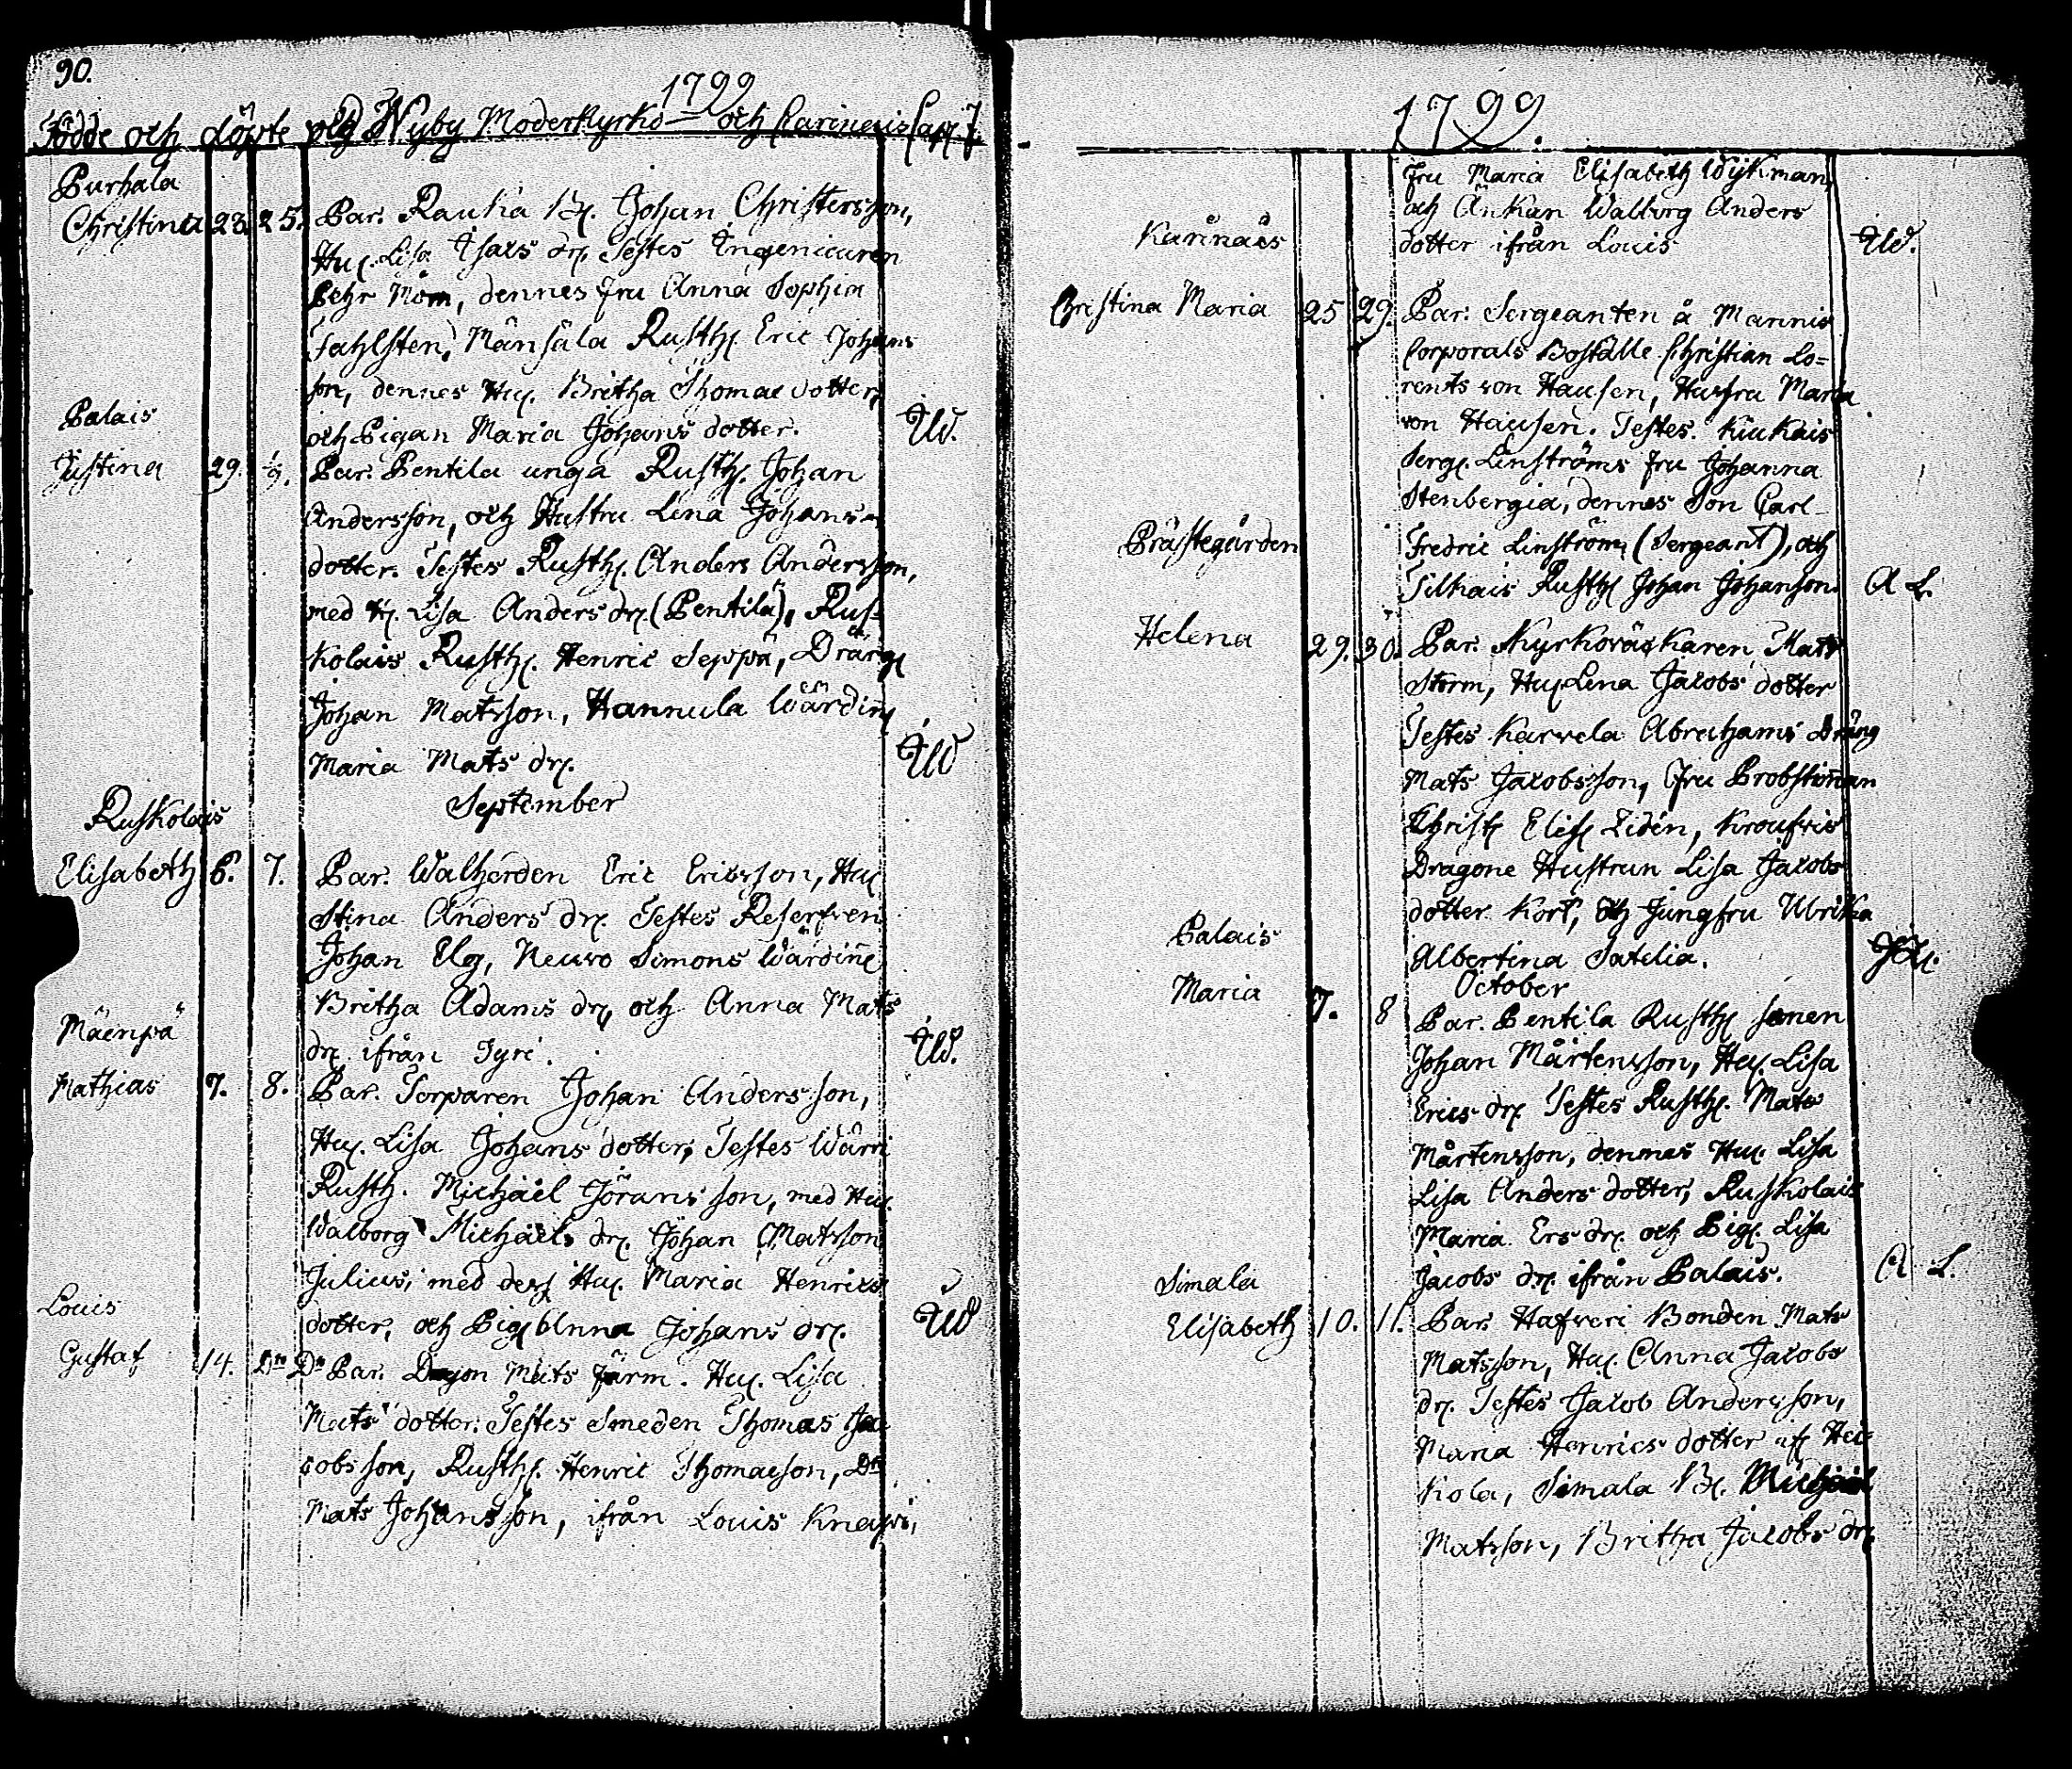 90.
1799
Födde och döpte wid Nyby Moderkyrko och Carinais Cap.
Purhala
Christina 23. 25. Par. Rauha B. Johan Christersson,
Hu. Lisa Isacs dr. Testes Ingenieuren
Pehr Nöm, dennes fru Anna Sophia
Fahlsten, Mänsäla Rusth. Eric Johans
son, dennes Hu. Britha Thomae dotter,
och Pigan Maria Johans dotter. Ud.
Palais
Justina 29. 1/9. Par. Pentila unga Rusth. Johan
Andersson, och Hustru Lena Johans
dotter. Testes Rusth. Anders Andersson,
med H. Lisa Anders dr. (Pentilä), Rus-
kolais Rusth. Henric Seppä, Dräng
Johan Matsson, Hannula Wärdin
Maria Mats dr. Ud
September
Ruskolais
Elisabeth 6. 7. Par. Walherden Eric Ericsson, Hu
Stina Anders dr. Testes Reserfven
Johan Elg, Neuvo Simons Wärdinn
Britha Adams dr. och Anna Mats
dr. ifrån Jyrè. Ud.
Mäenpä
Mathias 7. 8. Par. Torparen Johan Andersson,
Hu. Lisa Johans dotter, Testes Wärri
Rusth. Michaël Göransson, med Hu.
Walborg Michaëls dr. Johan Matsson
Julius, med dess Hu. Maria Henrics
dotter, och Pig. Anna Johans dr. Ud
Louis
Gustaf 14. Dn Dn Par. Dragon Mats Järm. Hu. Lisa
Mats dotter. Testes Smeden Thomas Ja-
cobsson, Rusth. Henric Thomaeson, Dn
Mats Johansson, ifrån Louis Knapi,
1799.
fru Maria Elisabeth Wykman,
och Änkan Walborg Anders
dotter ifrån Louis Ud.
Karinais
Christina Maria 25 29. Par. Sergeanten å Mannis
Corporals Boställe Christian Lo=
rents von Hausen, Husfru Maria
von Hausen. Testes. Kiukais
Serg. Linströms fru Johanna
Stenbergia, dennes Son Carl
Fredric Linström, (Sergeant), och
Tilkais Rusth Johan Johanson A L.
Prästegården
Helena 29. 30. Par. Kyrkoväckaren Mats
Storm, Hu. Lena Jacobs dotter
Testes Karvela Abrahams Dräng
Mats Jacobsson, fru Probstinnan
Christ. Elis. Lidén, Kroufvis
Dragone Hustrun Lisa Jacobs
dotter Kort, och Jungfru Ulrika
Albertina Satelia.
October
Palais
Maria 7. 8 Par. Pentila Rusth sonen
Johan Mårtensson, Hu. Lisa
Erics dr. Testes Rusth. Mats
Mårtensson, dennes Hu. Lisa
Lisa Anders dotter, Ruskolais
Maria Ers dr. och Pig. Lisa
Jacobs dr. ifrån Palais. A L.
Simala
Elisabeth 10. 11. Par. Hafveri Bonden Mats
Matsson, Hu. Anna Jacobs
dr. Testes Jacob Andersson,
Maria Henrics dotter if. Hei-
kola, Simala B. Michael
Matsson, Britha Jacobs dr.